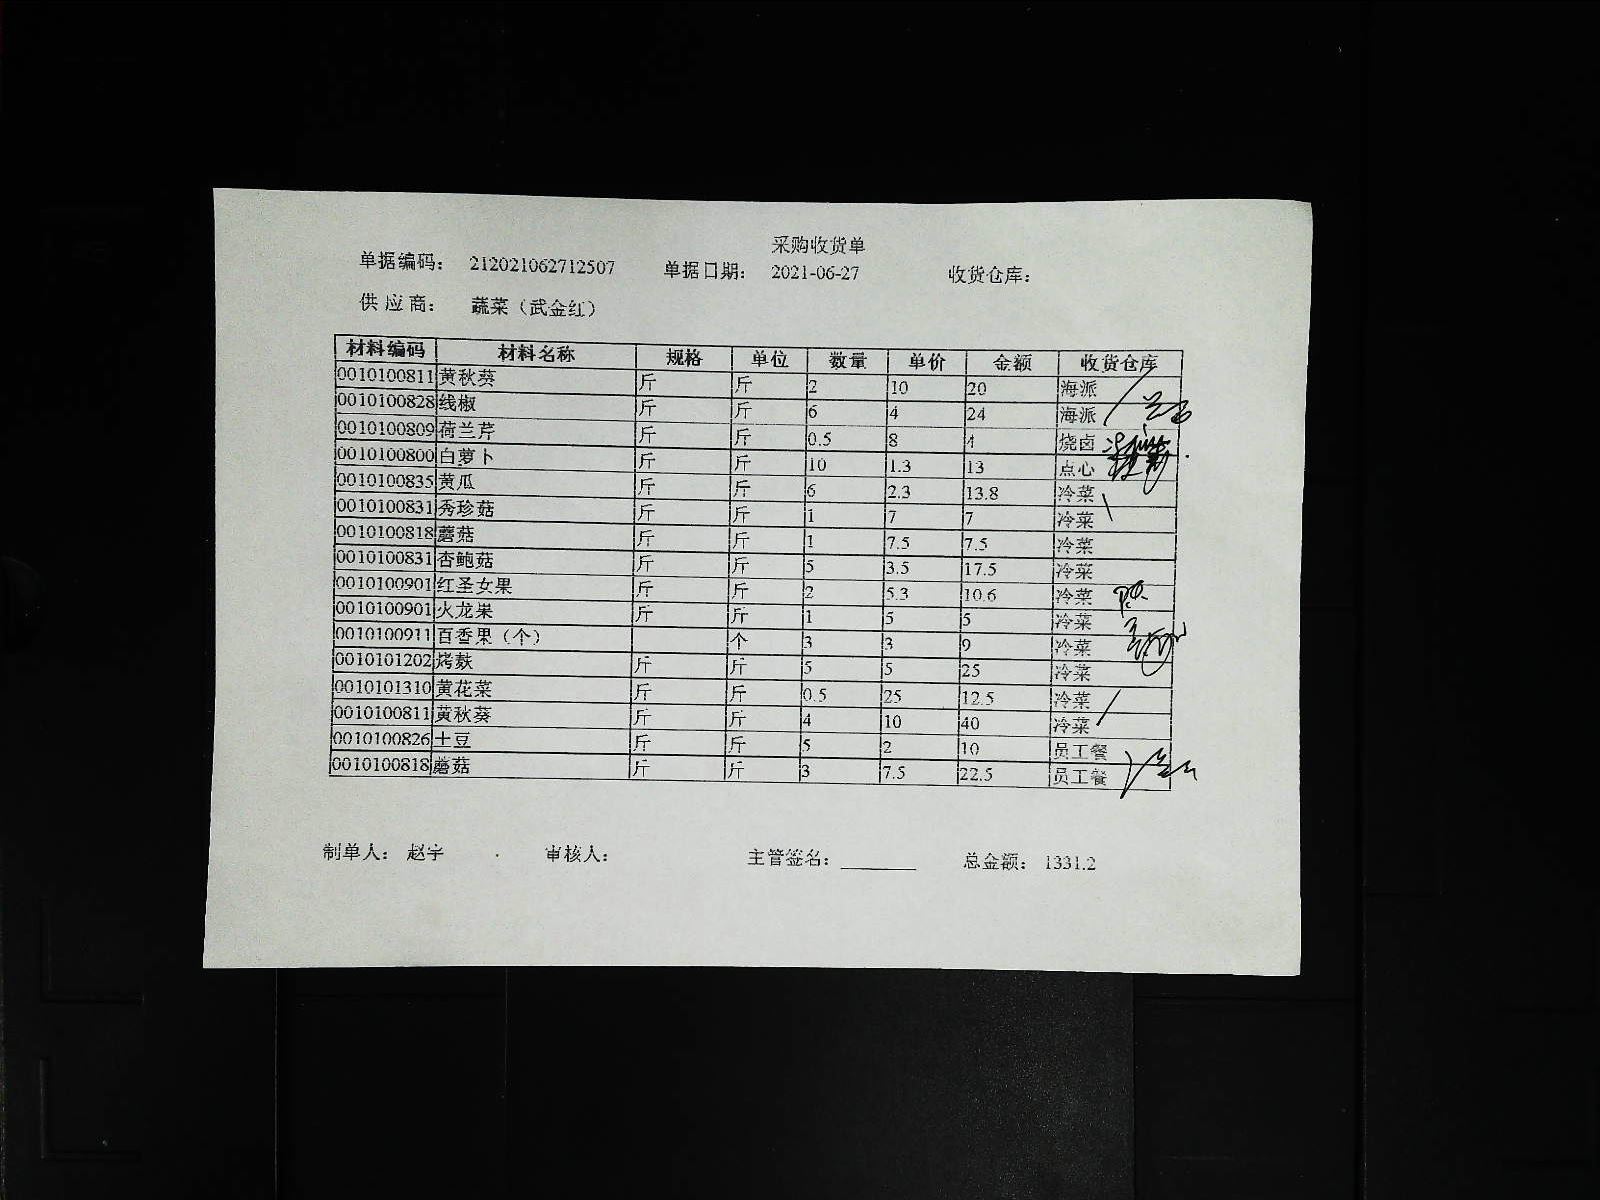 采购收货单
单据编码： 212021062712507 单据日期： 2021-06-27 收货仓库：
供应商： 蔬菜（武金红）
材料编码 材料名称 规格 单位 数量 单价 金额 收货仓库
0010100811 黄秋葵 斤 斤 2 10 20 海派
0010100828 线椒 斤 斤 6 4 24 海派
0010100809 荷兰芹 斤 斤 0.5 8 4 烧卤
0010100800 白萝卜 斤 斤 10 1.3 13 点心
0010100835 黄瓜 斤 斤 6 2.3 13.8 冷菜
0010100831 秀珍菇 斤 斤 1 7 7 冷菜
0010100818 蘑菇 斤 斤 1 7.5 7.5 冷菜
0010100831 杏鲍菇 斤 斤 5 3.5 17.5 冷菜
0010100901 红圣女果 斤 斤 2 5.3 10.6 冷菜
0010100901 火龙果 斤 斤 1 5 5 冷菜
0010100911 百香果（个） 个 3 3 9 冷菜
0010101202 烤麸 斤 斤 5 5 25 冷菜
0010101310 黄花菜 斤 斤 0.5 25 12.5 冷菜
0010100811 黄秋葵 斤 斤 4 10 40 冷菜
0010100826 土豆 斤 斤 5 2 10 员工餐
0010100818 蘑菇 斤 斤 3 7.5 22.5 员工餐
制单人： 赵宇 审核人： 主管签名： 总金额： 1331.2